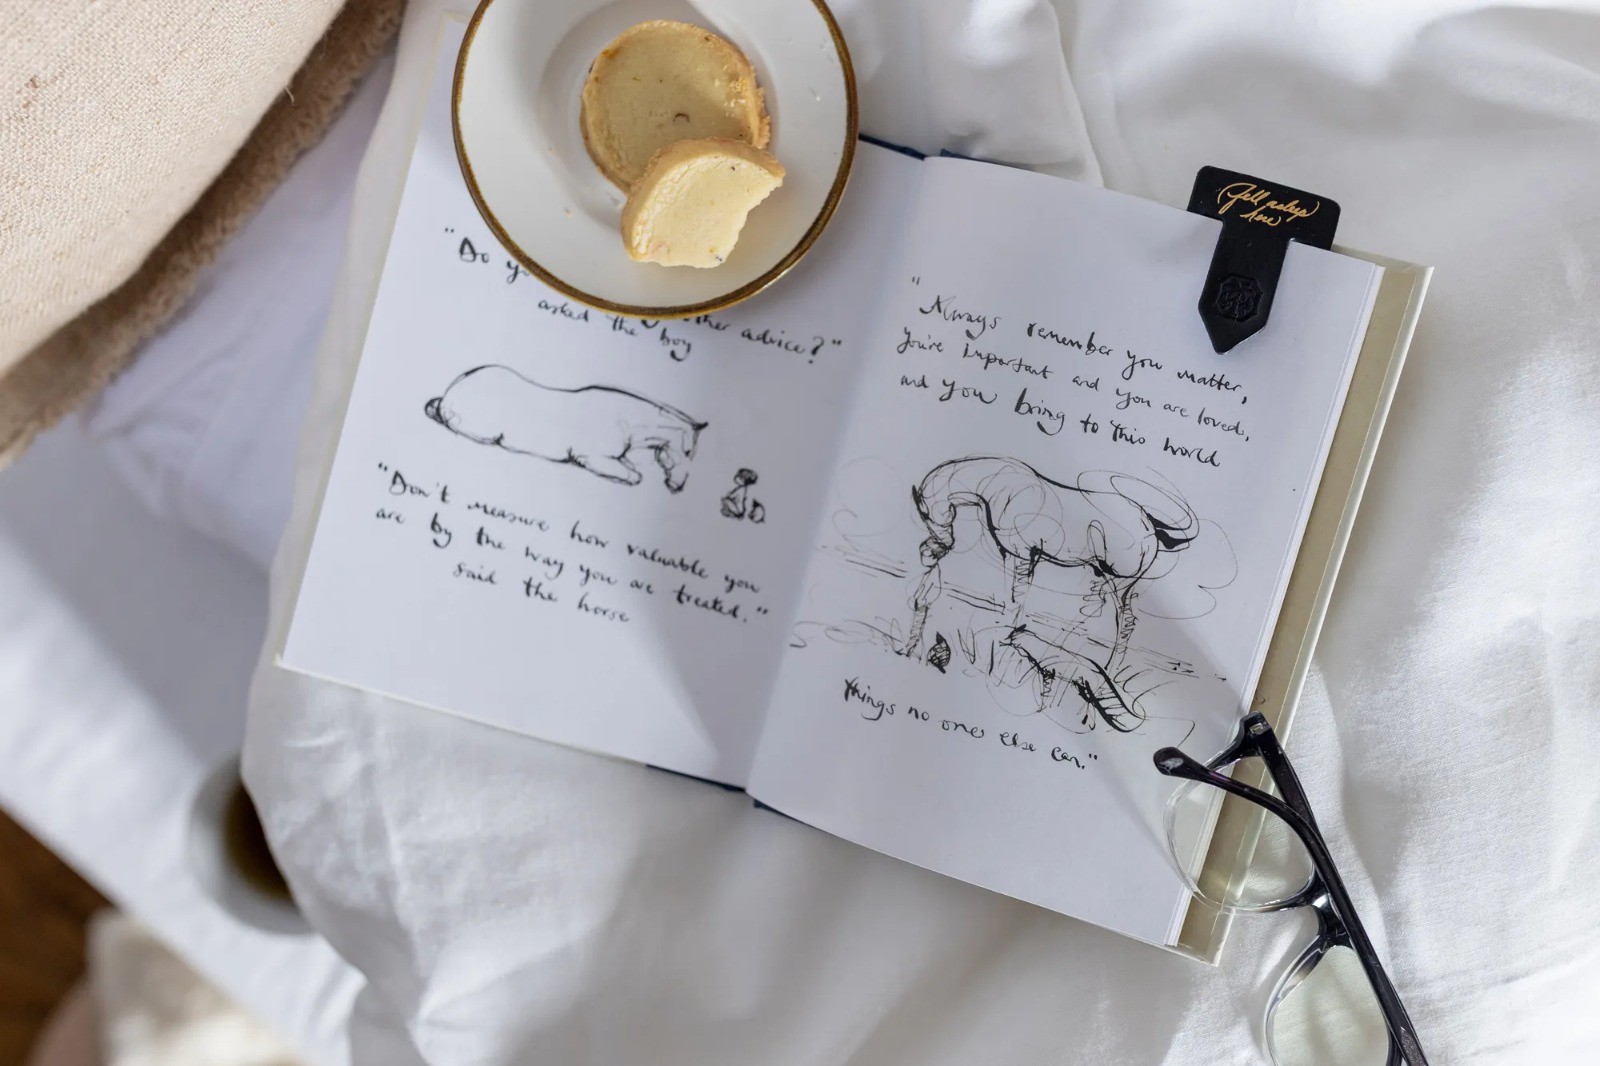 "Do yo
ther advice?"
asked the boy
"Don't measure how valuable you
are by the way you are treated."
said the horse
"Always remember you matter,
you're important and you are loved,
and you bring to this world
things no one else can."
Fell asleep
here